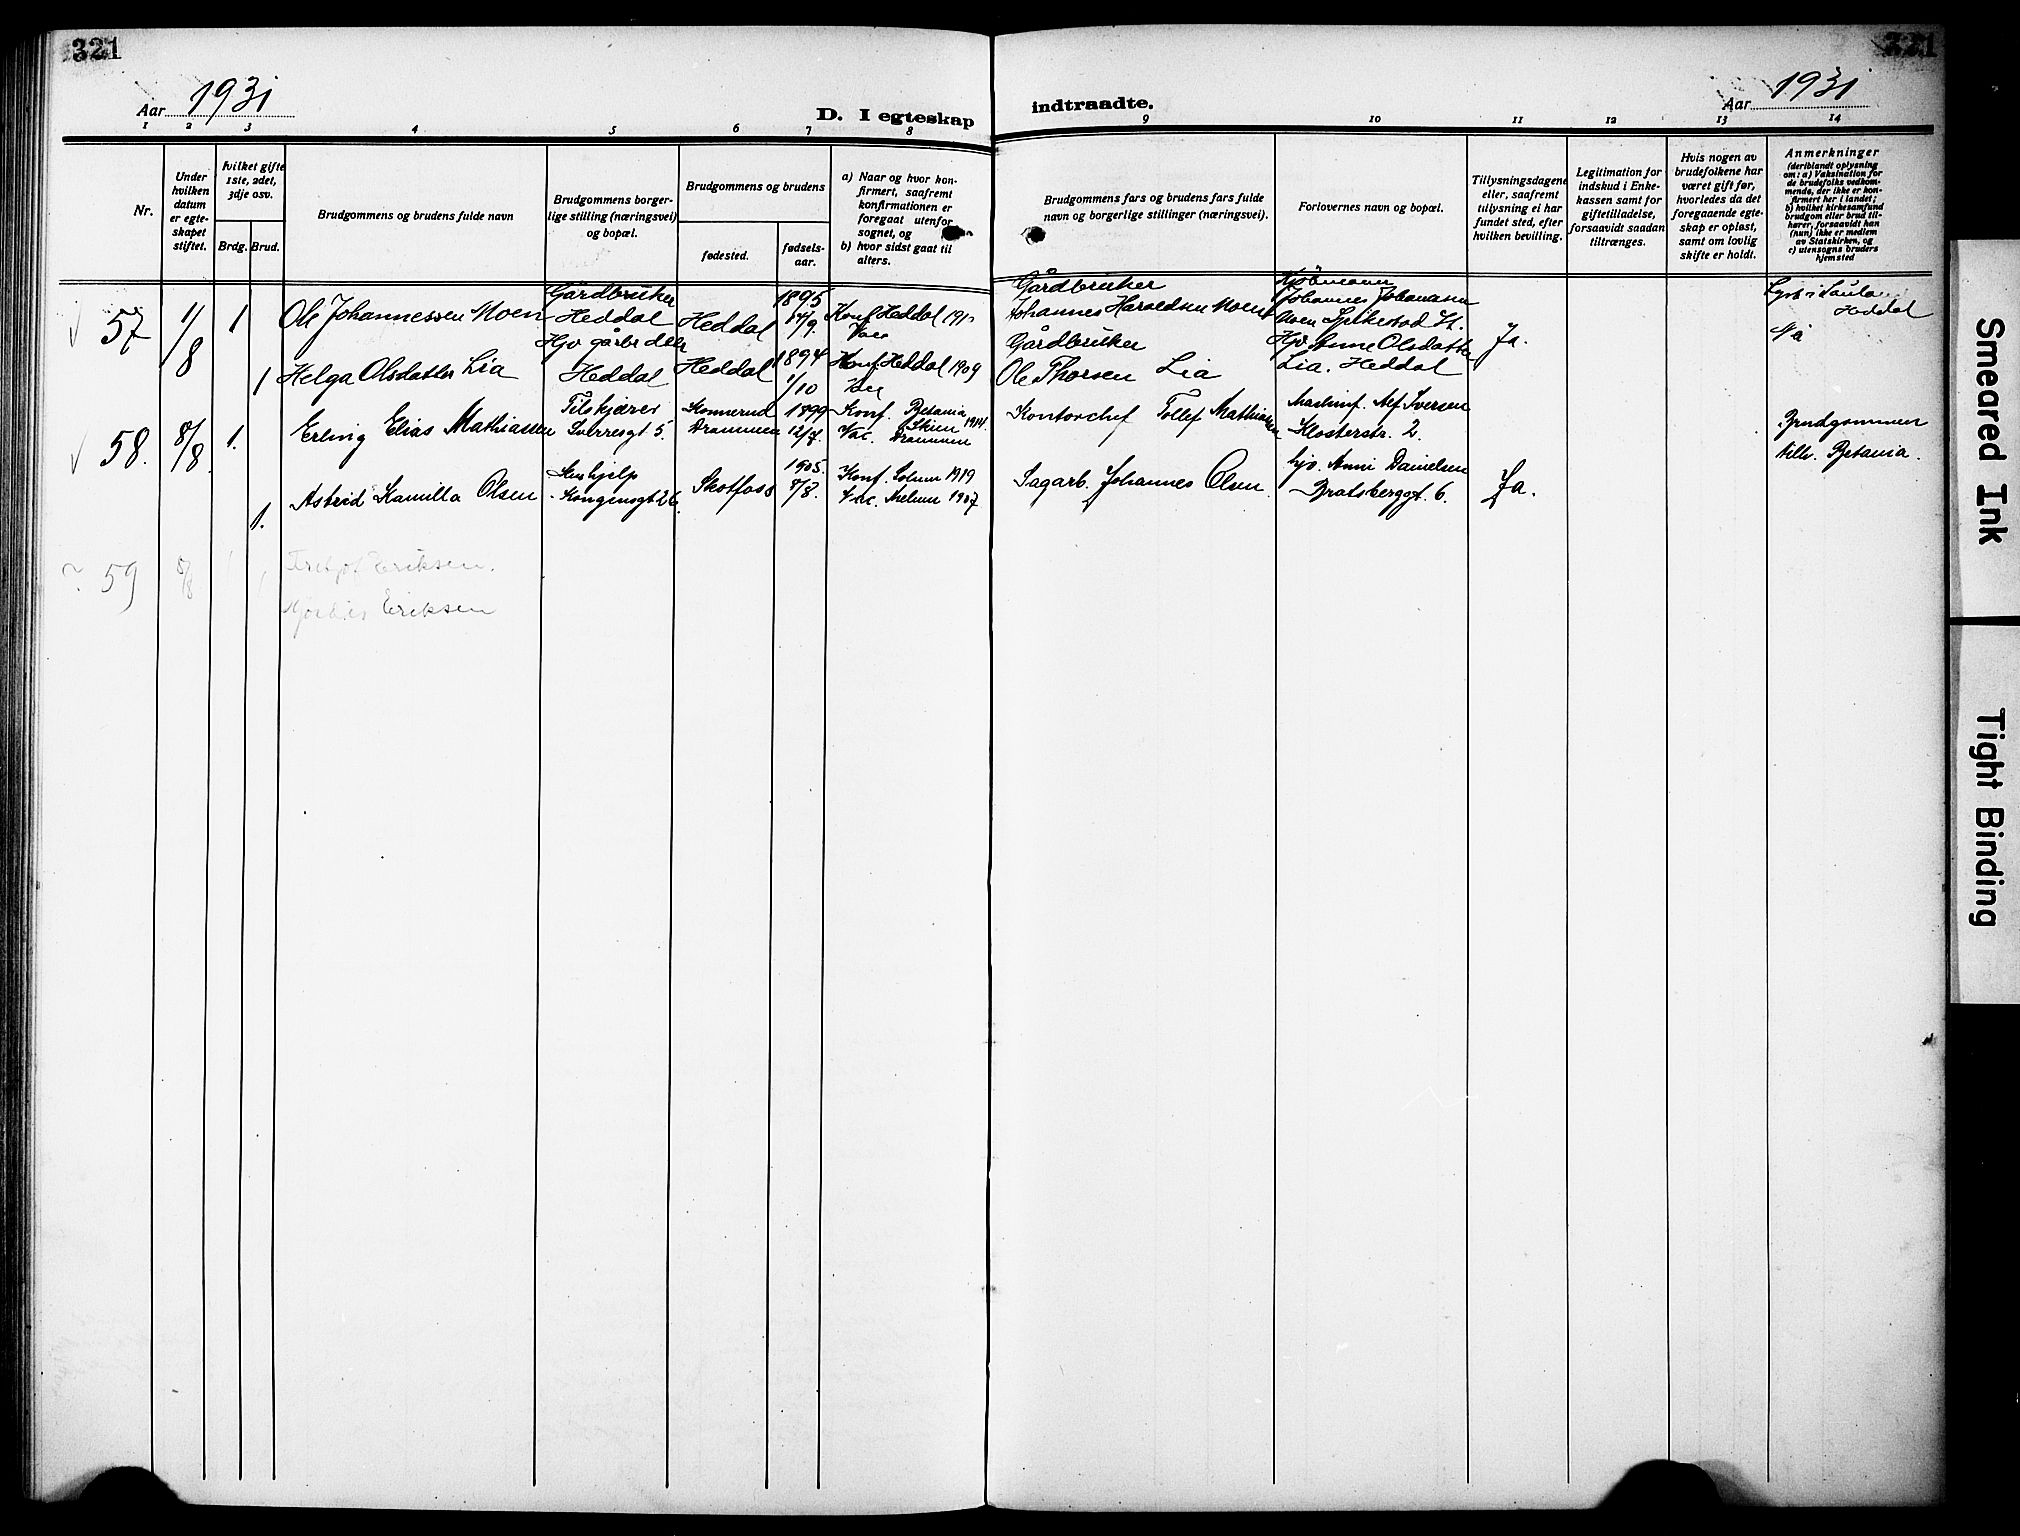 321
321
Aar 1931
D. I egteskap
indtraadte.
Aar 1931
1 2 3 4 5 6 7 8 9 10 11 12 13 14
Nr.
Under
hvilken
datum
er egte-
skapet
stiftet.
hvilket gifte
1ste, 2det,
3dje osv.
Brdg. Brud.
Brudgommens og brudens fulde navn
Brudgommens borger-
lige stilling (næringsvei)
og bopæl.
Brudgommens og brudens
fødested.
fødsels-
aar.
a) Naar og hvor kon-
firmert, saafremt
konfirmationen er
foregaat utenfor
sognet, og
b) hvor sidst gaat til
alters.
Brudgommens fars og brudens fars fulde
navn og borgerlige stillinger (næringsvei).
Forlovernes navn og bopæl.
Tillysningsdagene
eller, saafremt
tillysning ei har
fundet sted, efter
hvilken bevilling.
Legitimation for
indskud i Enke-
kassen samt for
giftetilladelse,
forsaavidt saadan
tiltrænges.
Hvis nogen av
brudefolkene har
været gift før,
hvorledes da det
foregaaende egte-
skap er opløst,
samt om lovlig
skifte er holdt.
Anmerkninger
(deriblandt oplysning
om: a) Vaksination for
de brudefolks vedkom-
mende, der ikke er kon-
firmert her i landet;
b) hvilket kirkesamfund
brudgom eller brud til-
hører, forsaavidt han
(hun) ikke er medlem
av Statskirken, og
c) utensogns bruders
hjemsted
57 1/8 1 Ole Johannessen Moen
Gårdbruker
Heddal
Heddal
1895
14/9.
Konf Heddal
Gårdbruker
Johannes Haroldsen Moen
Johannes Johansen
Moen Spikestad St.
Ja.
Heddal
1 Helga Olsdatter Lia
Heddal
Heddal
1894
1/10
Konf. Heddal 1909
Gårdbruker
Ole Thorsen Lia
Anne Olsdatter
Lia. Heddal
58. 8/8 1. Erling Elias Mathiassen
Tilskjærer
Sverresgt 5.
Konnerud
Drammen
1899
12/7.
Konf. Betania
Skien 1914.
Vac. Drammen
Kontorchef Tollef Mathiassen
Maskinf. Alf Iversen
Klosterstr. 2.
Brudgommen
tilh. Betania.
1. Astrid Kamilla Olsen
Kongensgt 26.
Skotfoss
1905.
8/8.
Konf. Solum 1919
Vac. Melum 1927
Sagarb. Johannes Olsen
hjv. Anni Danielsen
Bratsberggt. 6.
Ja.
59 8/8 Eriksen.
Eriksen
Smeared Ink
Tight Binding